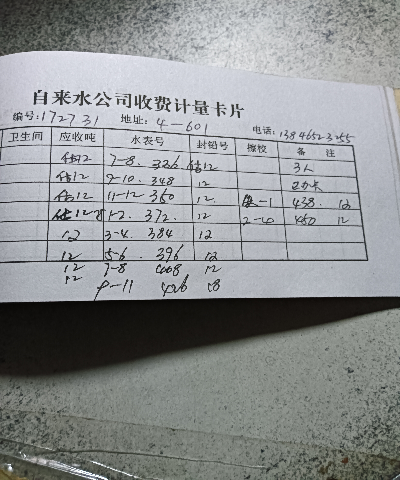 自来水公司收费计量卡片
编号:172731 地址: 4-601 电话:13846523255
卫生间 应收吨 水表号 封铅号 擦校 备 注
估12 7-8. 336. 估12 3人
估12 9-10. 348 12 2办卡
估12 11-12 360 12. -1 438. 12
12 1-2. 372. 12 2-4 450 12
12 3-4. 384 12
12 5-6. 396 12
12 7-8 408 12
12 9-11 426 18